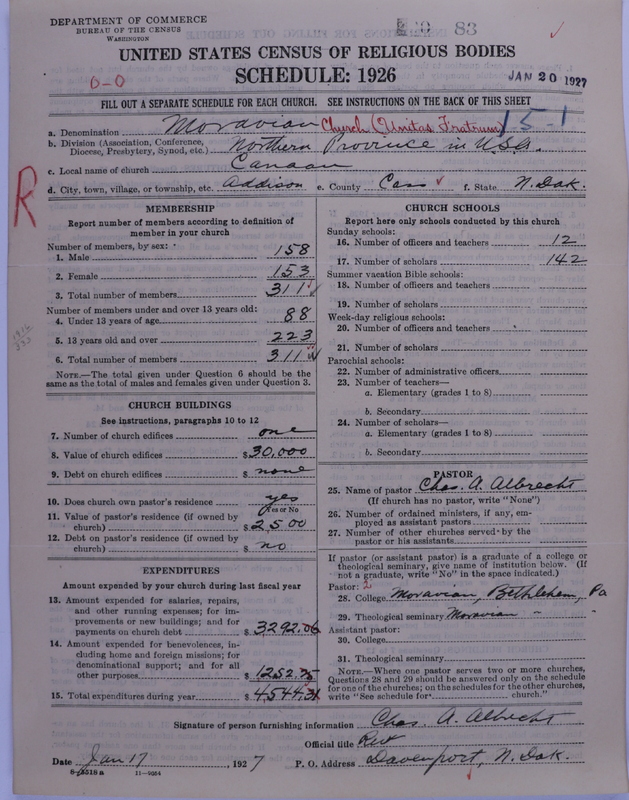 DEPARTMENT OF COMMERCE
BUREAU OF THE CENSUS
WASHINGTON
83
UNITED STATES CENSUS OF RELIGIOUS BODIES
SCHEDULE: 1926
0-0
JAN 20 1927
FILL OUT A SEPARATE SCHEDULE FOR EACH CHURCH. SEE INSTRUCTIONS ON THE BACK OF THIS SHEET
a. Denomination Moravian Church (Unitas Fratrum) 15-1
b. Division (Association, Conference, Diocese, Presbytery, Synod, etc.) Northern Province in U.S.A.
c. Local name of church Canaan
d. City, town, village, or township, etc. Addison e. County Cass f. State N. Dak.
R
MEMBERSHIP
Report number of members according to definition of
member in your church
Number of members, by sex:
1. Male 158
2. Female 153
3. Total number of members 311
Number of members under and over 13 years old:
4. Under 13 years of age 88
5. 13 years old and over 223
6. Total number of members 311
NOTE.—The total given under Question 6 should be the
same as the total of males and females given under Question 3.
CHURCH BUILDINGS
See instructions, paragraphs 10 to 12
7. Number of church edifices one
8. Value of church edifices $30,000
9. Debt on church edifices $ none
10. Does church own pastor's residence yes
(Yes or No
11. Value of pastor's residence (if owned by
church) $2500
12. Debt on pastor's residence (if owned by
church) $ no
EXPENDITURES
Amount expended by your church during last fiscal year
13. Amount expended for salaries, repairs,
and other running expenses; for im-
provements or new buildings; and for
payments on church debt $3292.06
14. Amount expended for benevolences, in-
cluding home and foreign missions; for
denominational support; and for all
other purposes $1252.25
15. Total expenditures during year $4544.31
CHURCH SCHOOLS
Report here only schools conducted by this church
Sunday schools:
16. Number of officers and teachers 12
17. Number of scholars 142
Summer vacation Bible schools:
18. Number of officers and teachers
19. Number of scholars
Week-day religious schools:
20. Number of officers and teachers
21. Number of scholars
Parochial schools:
22. Number of administrative officers
23. Number of teachers—
a. Elementary (grades 1 to 8)
b. Secondary
24. Number of scholars—
a. Elementary (grades 1 to 8)
b. Secondary
PASTOR
25. Name of pastor Chas. A. Albrecht
(If church has no pastor, write "None")
26. Number of ordained ministers, if any, em-
ployed as assistant pastors
27. Number of other churches served by the
pastor or his assistants
If pastor (or assistant pastor) is a graduate of a college or
theological seminary, give name of institution below. (If
not a graduate, write "No" in the space indicated.)
Pastor: 2
28. College Moravian, Bethlehem, Pa
29. Theological seminary Moravian " "
Assistant pastor:
30. College
31. Theological seminary
NOTE.—Where one pastor serves two or more churches,
Questions 28 and 29 should be answered only on the schedule
for one of the churches; on the schedules for the other churches,
write "See schedule for church."
Signature of person furnishing information Chas. A. Albrecht
Official title Rev
Date Jan 17, 1927 P. O. Address Davenport, N. Dak.
8-5518 a 11-9054